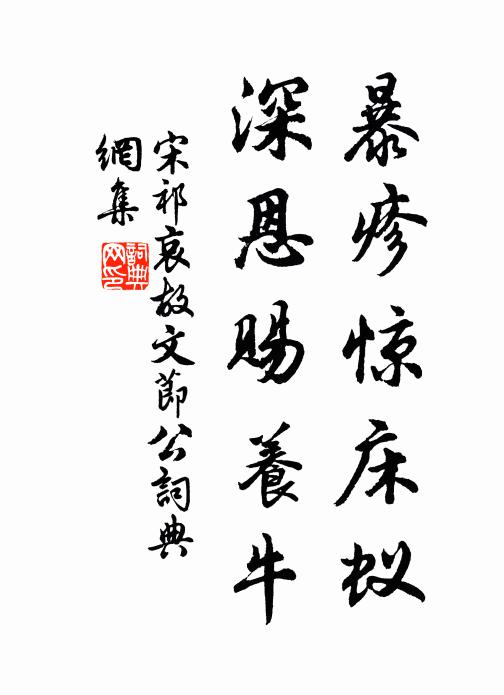 暴疹惊床蚁
深恩賜養牛
宋祁哀故文節公詞典
網集
詞典
网印